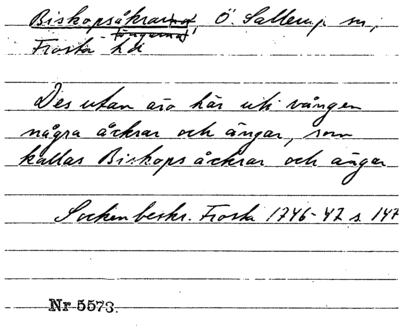 Biskopsåkrarna, Ö. Sallerup sn,
Frosta hd
Des utan äro här uti vången
några åckrar och ängar, som
kallas Biskops åckrar och ängar
Sockenbeskr. Frosta 1746-47 s. 147
Nr 5573.